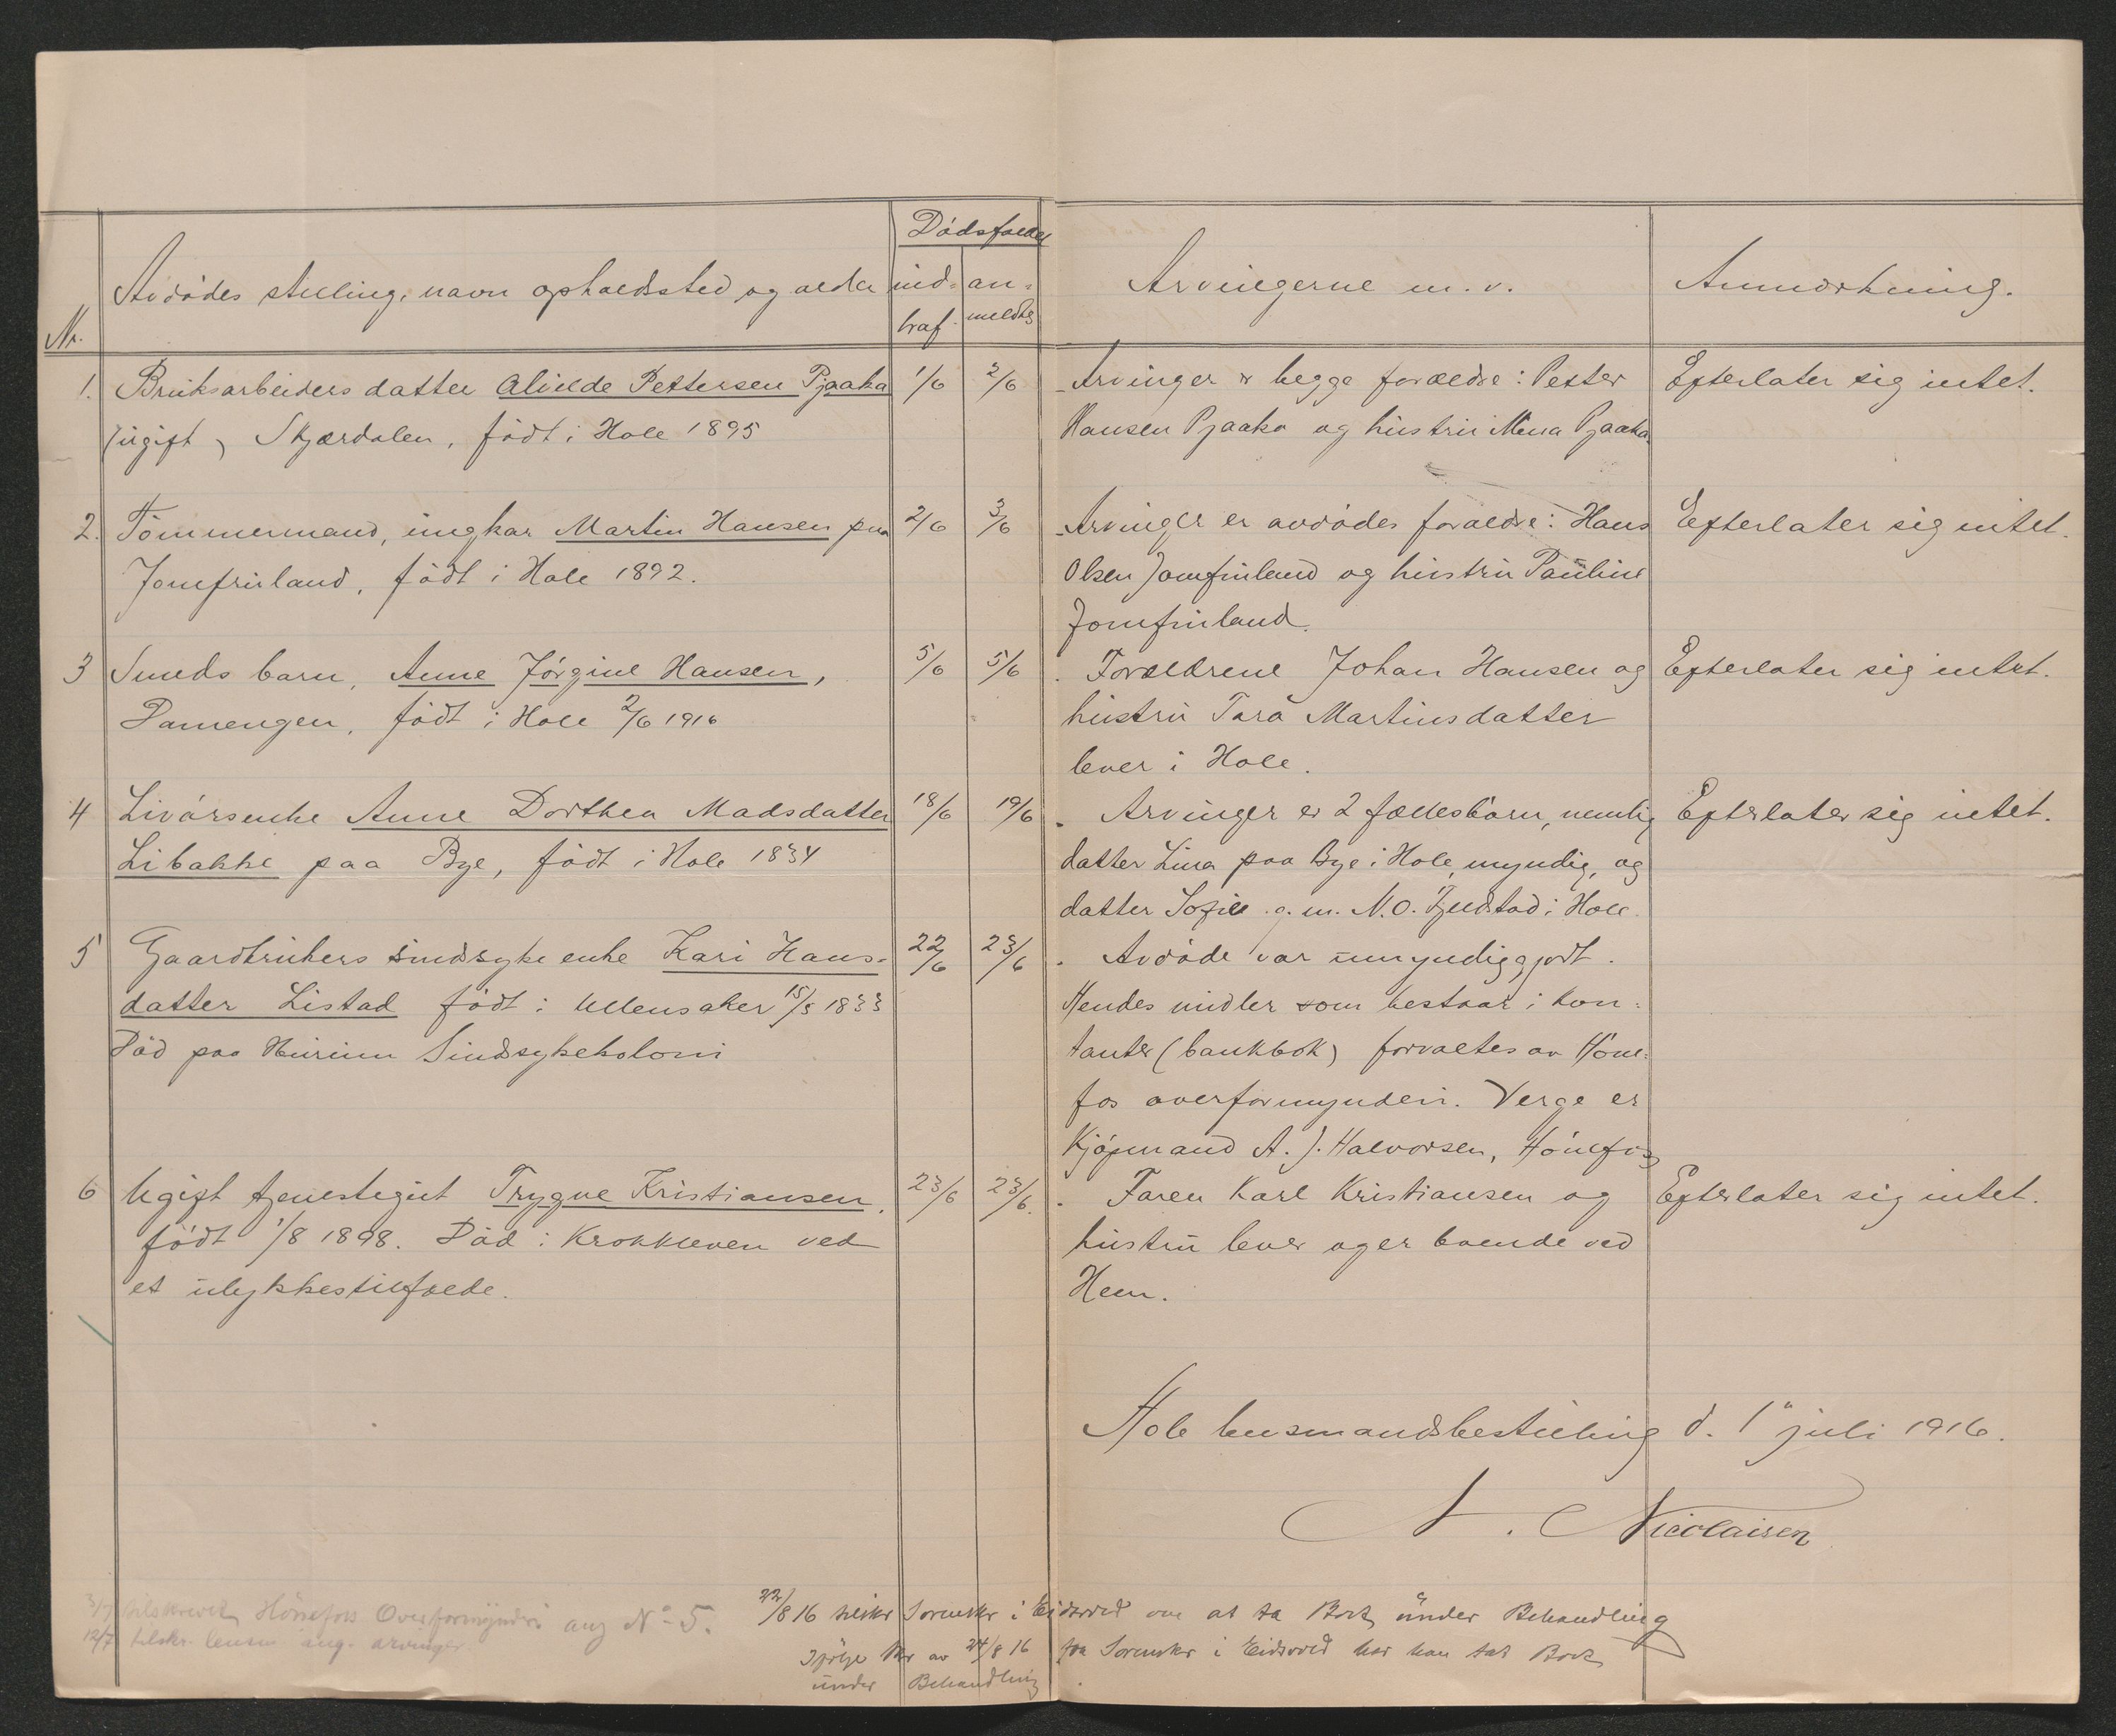 Dødsfaldet
Avdødes stilling, navn opholdssted og alder
ind-
an-
Arvingerne m. v.
Anmerkning.
Nr.
traf
meldtes
1. Bruksarbeiders datter Alvilde Pettersen Pjaaka 1/6 2/6 Arvinger er begge forældre: Petter Efterlater sig intet.
(ugift) Skjærdalen, født i Hole 1895 Hansen Pjaaka og hustru Mina Pjaaka
2. Tømmermand, ungkar Martin Hansen paa 2/6 3/6 Arvinger er avdødes forældre: Hans Efterlater sig intet.
Jomfruland, født i Hole 1892. Olsen Jomfruland og hustru Pauline
Jomfruland.
3 Smeds barn, Anne Jørgine Hansen, 5/6 5/6 Forældrene Johan Hansen og Efterlater sig intet.
Damengen, født i Hole 2/6 1916 hustru Tora Martinsdatter
lever i Hole.
4 Livørsenke Anne Dorthea Madsdatter 18/6 19/6 Arvinger er 2 fællesbørn, nemlig Efterlater sig intet.
Libakke paa Bye, født i Hole 1834 datter Lina paa Bye i Hole, myndig, og
datter Sofie g. m. N. O. Fjeldstad i Hole.
5 Gaardbrukers sindssyke enke Kari Hans- 22/6 23/6 Avdøde var umyndiggjort.
datter Listad født i Ullensaker 15/5 1833 Hendes midler som bestaar i kon-
Død paa Hurum Sindsykekoloni tanter (bankbok) forvaltes av Høne-
fos overformynderi. Verge er
Kjøpmand A. J. Halvorsen, Hønefos
6 Ugift tjenestegut Trygve Kristiansen, 23/6 23/6. Faren Karl Kristiansen og Efterlater sig intet.
født 1/8 1898. Død i Krokkleven ved hustru lever og er boende ved
et ulykkestilfælde. Hem.
Hole lensmandsbestilling d. 1 juli 1916.
N. Nicolaisen
3/7 tilskrevet Hønefoss Overformynderi ang No 5.
12/7 tilskr. lensm ang. arvinger.
22/8 16 tilskr Sorenskr i Eidsvold om at ta Boet under Behandling
Ifølge Skr av 24/8 16 fra Sorenskr i Eidsvold har han tat Boet
under Behandling.